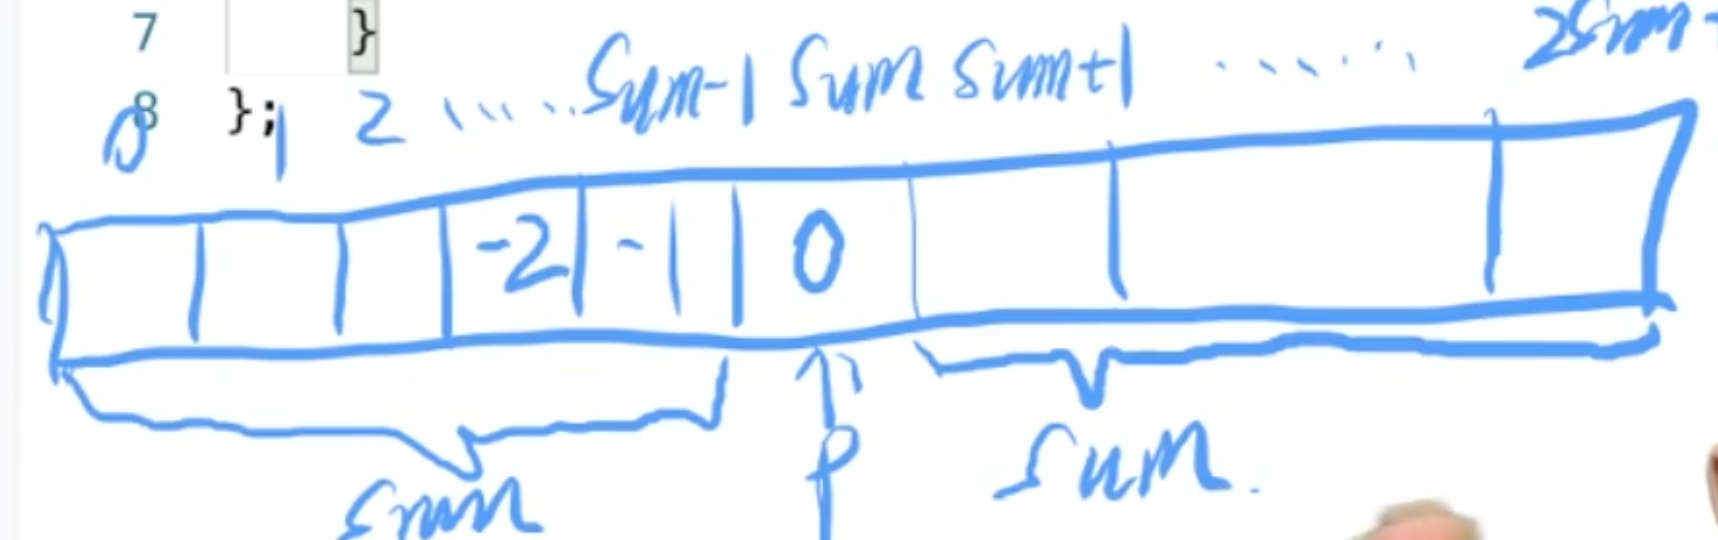 7 }
8 };
0 1 2 ..... Sum-1 Sum Sum+1 ......
-2 -1 0
Sum P Sum.